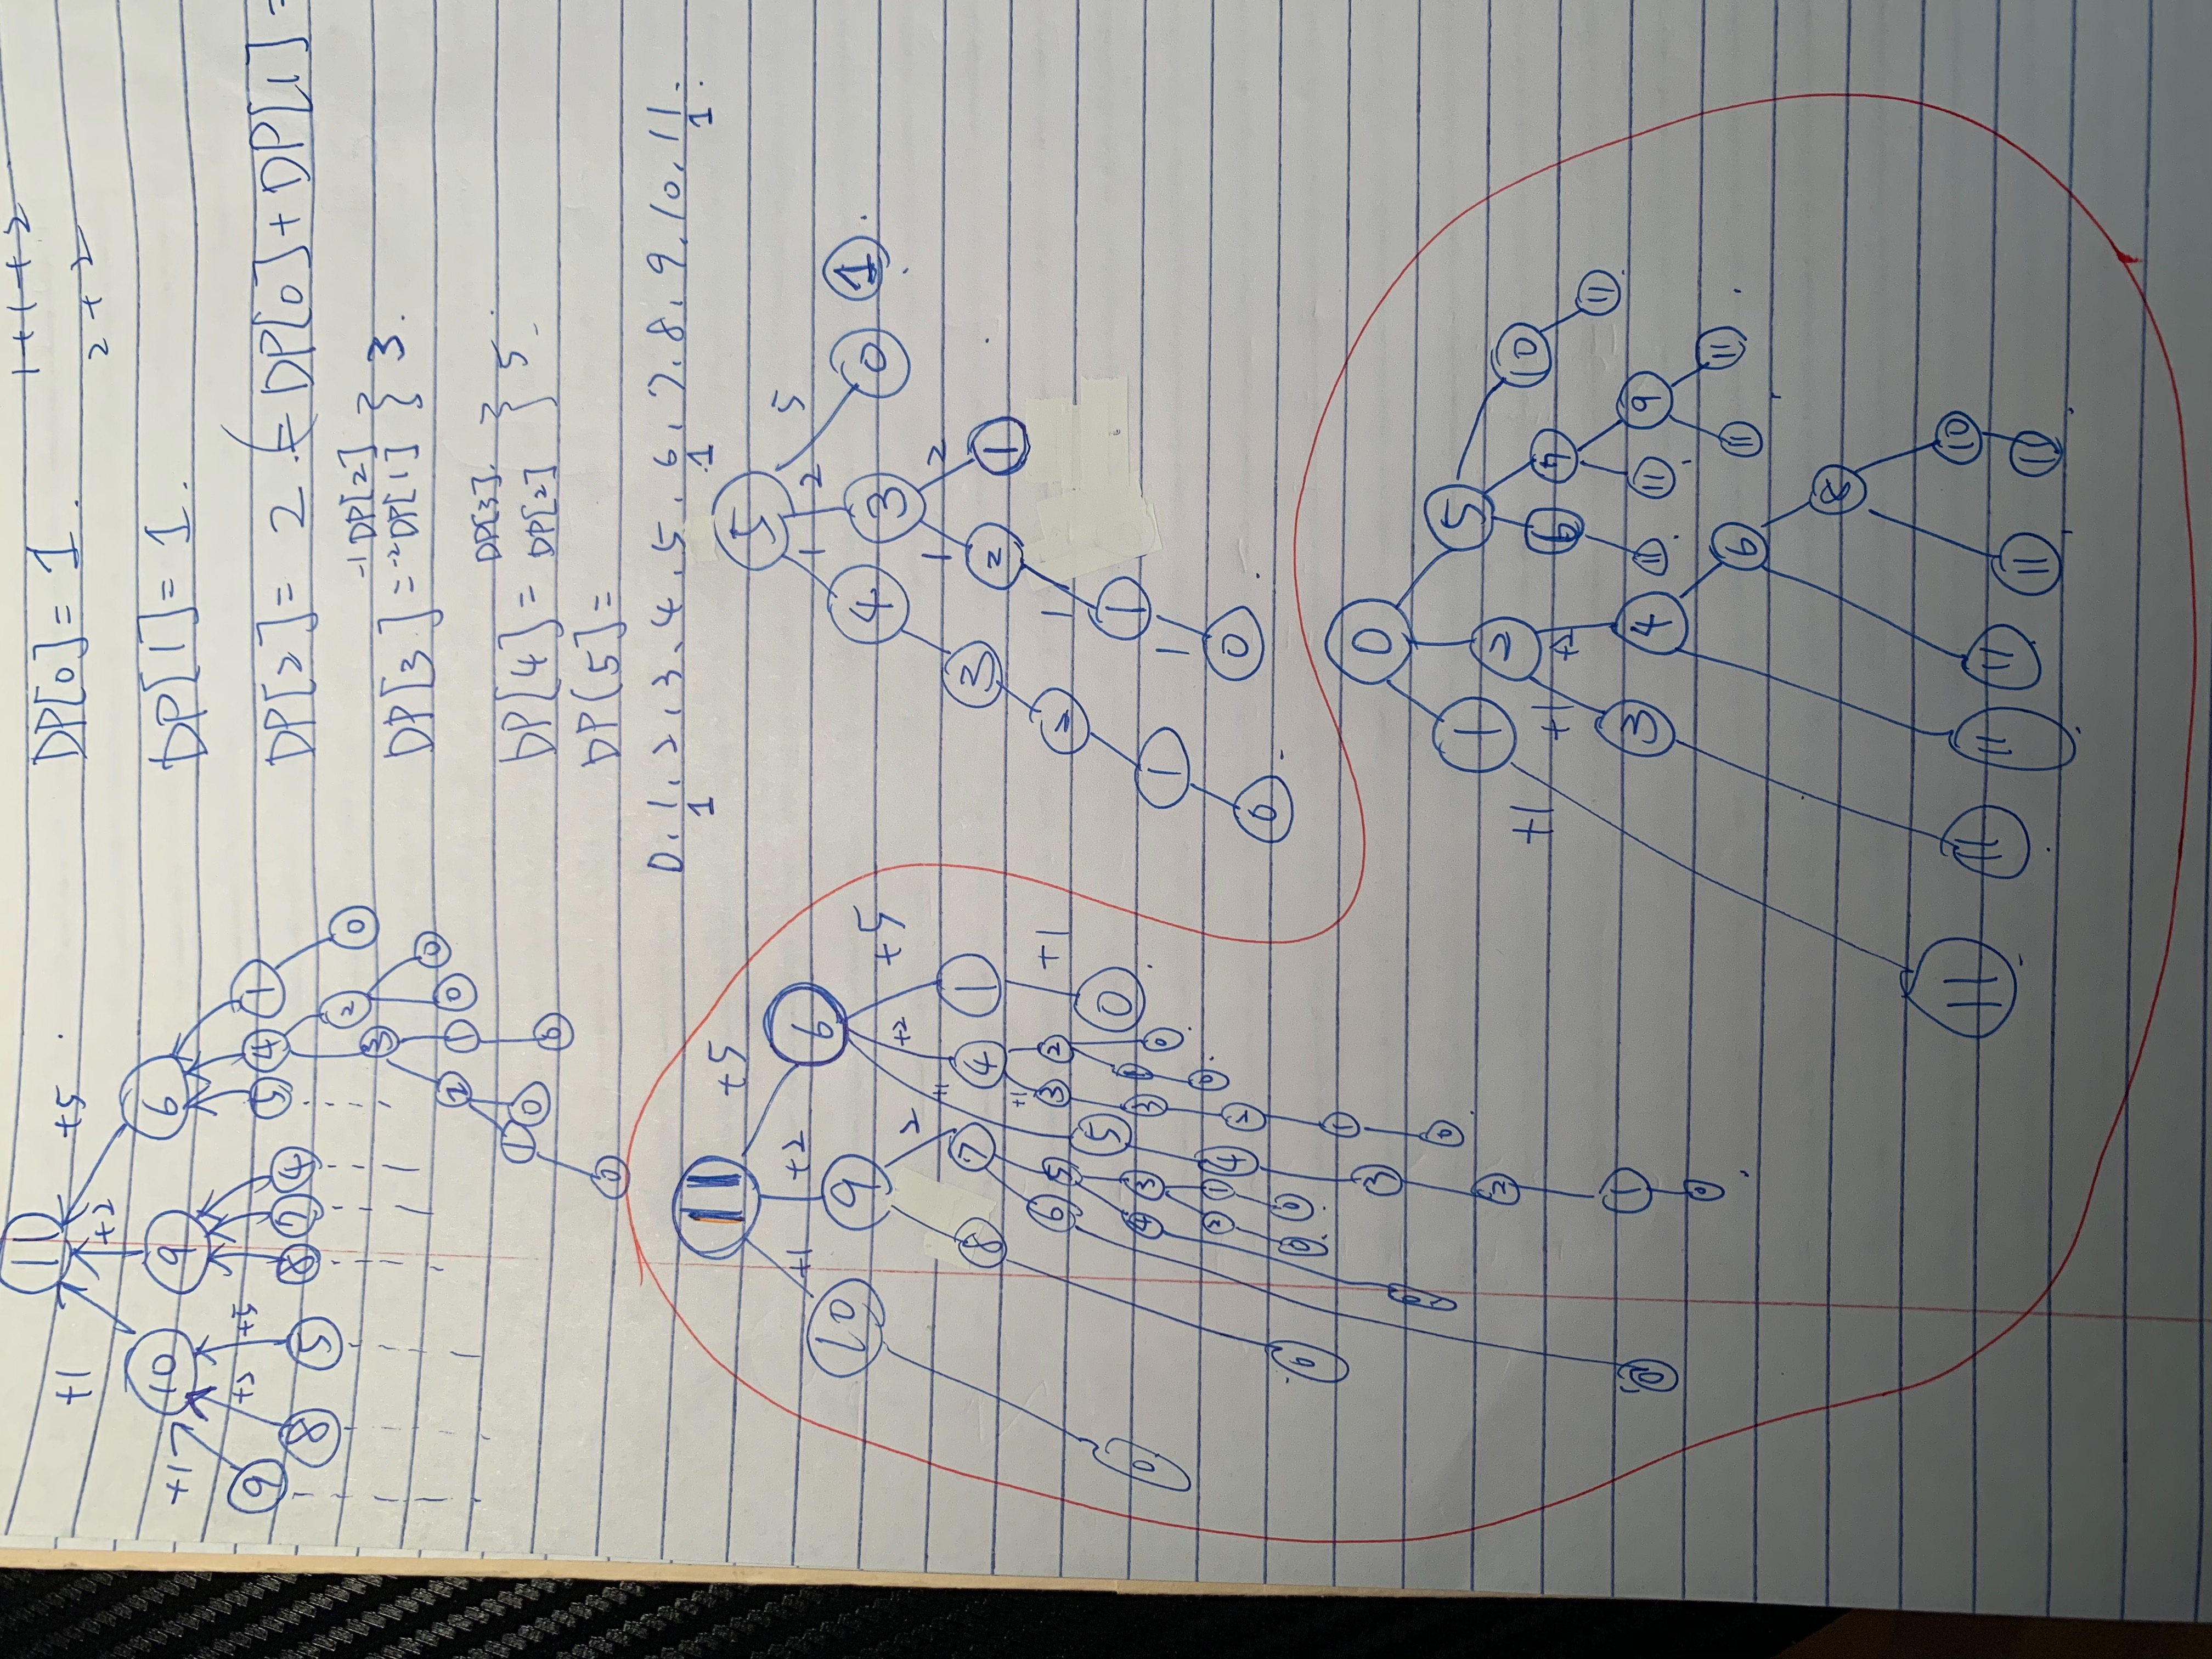 11
+1 +2 +5
10 9 6
+1 +5
9 8 5 8 7 4 5 4 1
3 2 0
2 1 0 0
1 0 0
0
1+1+2
2+2
DP[0]= 1.
DP[1]= 1.
DP[2]= 2. ( DP[0]+DP[1]=
DP[3]= -1 DP[2] } 3.
-2 DP[1]
DP[4]= DP[3]. } 5.
DP[2]
DP[5]=
0, 1, 2, 3, 4, 5, 6, 7, 8, 9, 10, 11.
1 1 1.
11
+1 +2 +5
10 9 6
2 +1 +2 +5
8 7 4 1
+1 +1
6 5 3 2
5 0
4 3 3 1 0
0 2 1 4 2 0
0 0 0 1
3
0 0
2
0 1
0
5
1 2 5
4 3 0 1.
1 2
3 2 1
2 1
1 1
1
0 0
0
1 2 5
+1 +1 +2
10
6 7 11
3 4 11 11 9
6 11 11
8
10
11 11 11 11 11 11